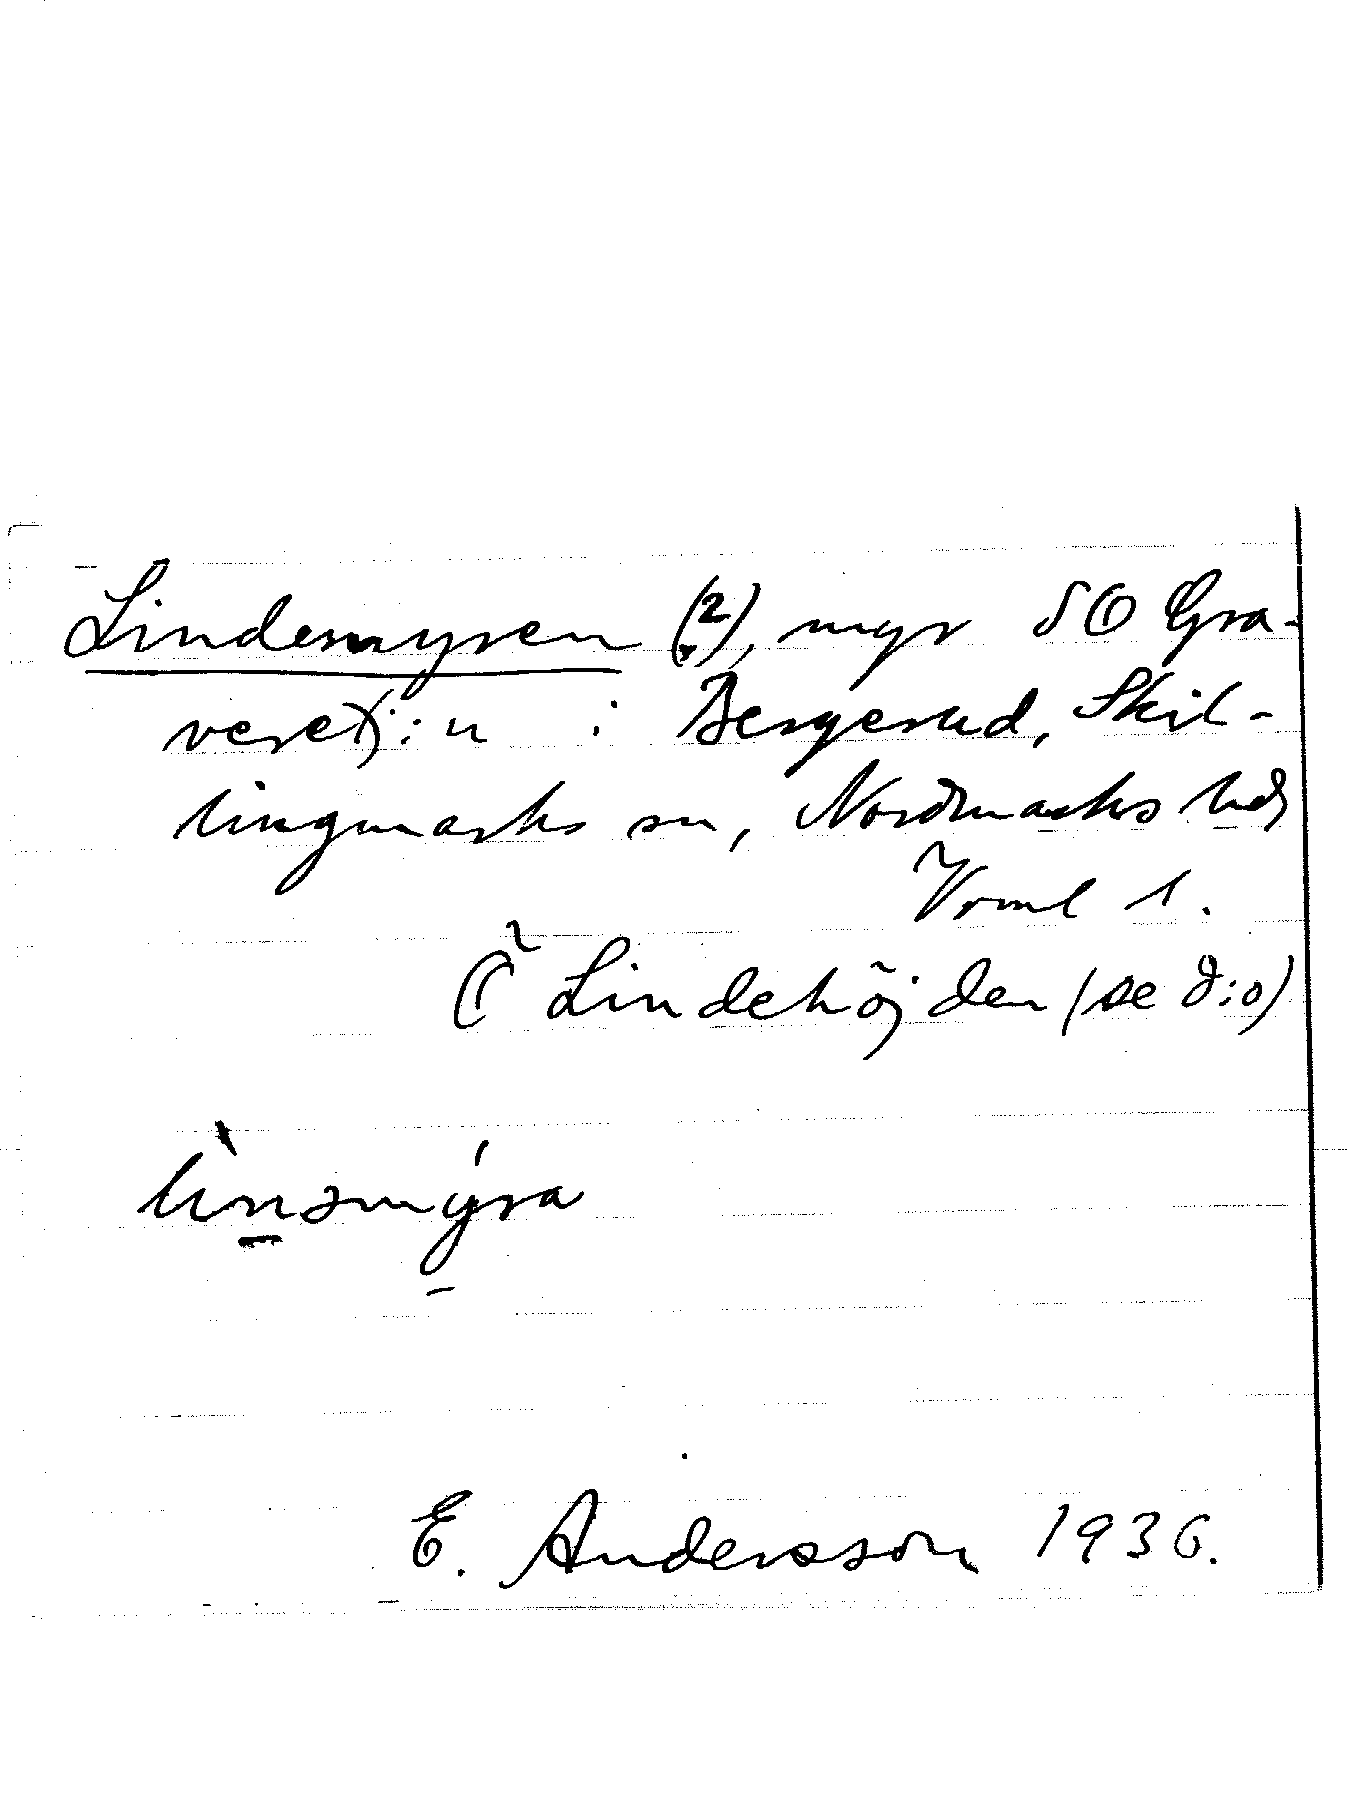 Lindemyren (?), myr SO Gra-
veret i: n i Bergerud, Skil-
lingmarks sn, Nordmarks hd
Vrml 1.
C Lindehöjden (se d:o)
lìnəmýra
E. Andersson 1936.